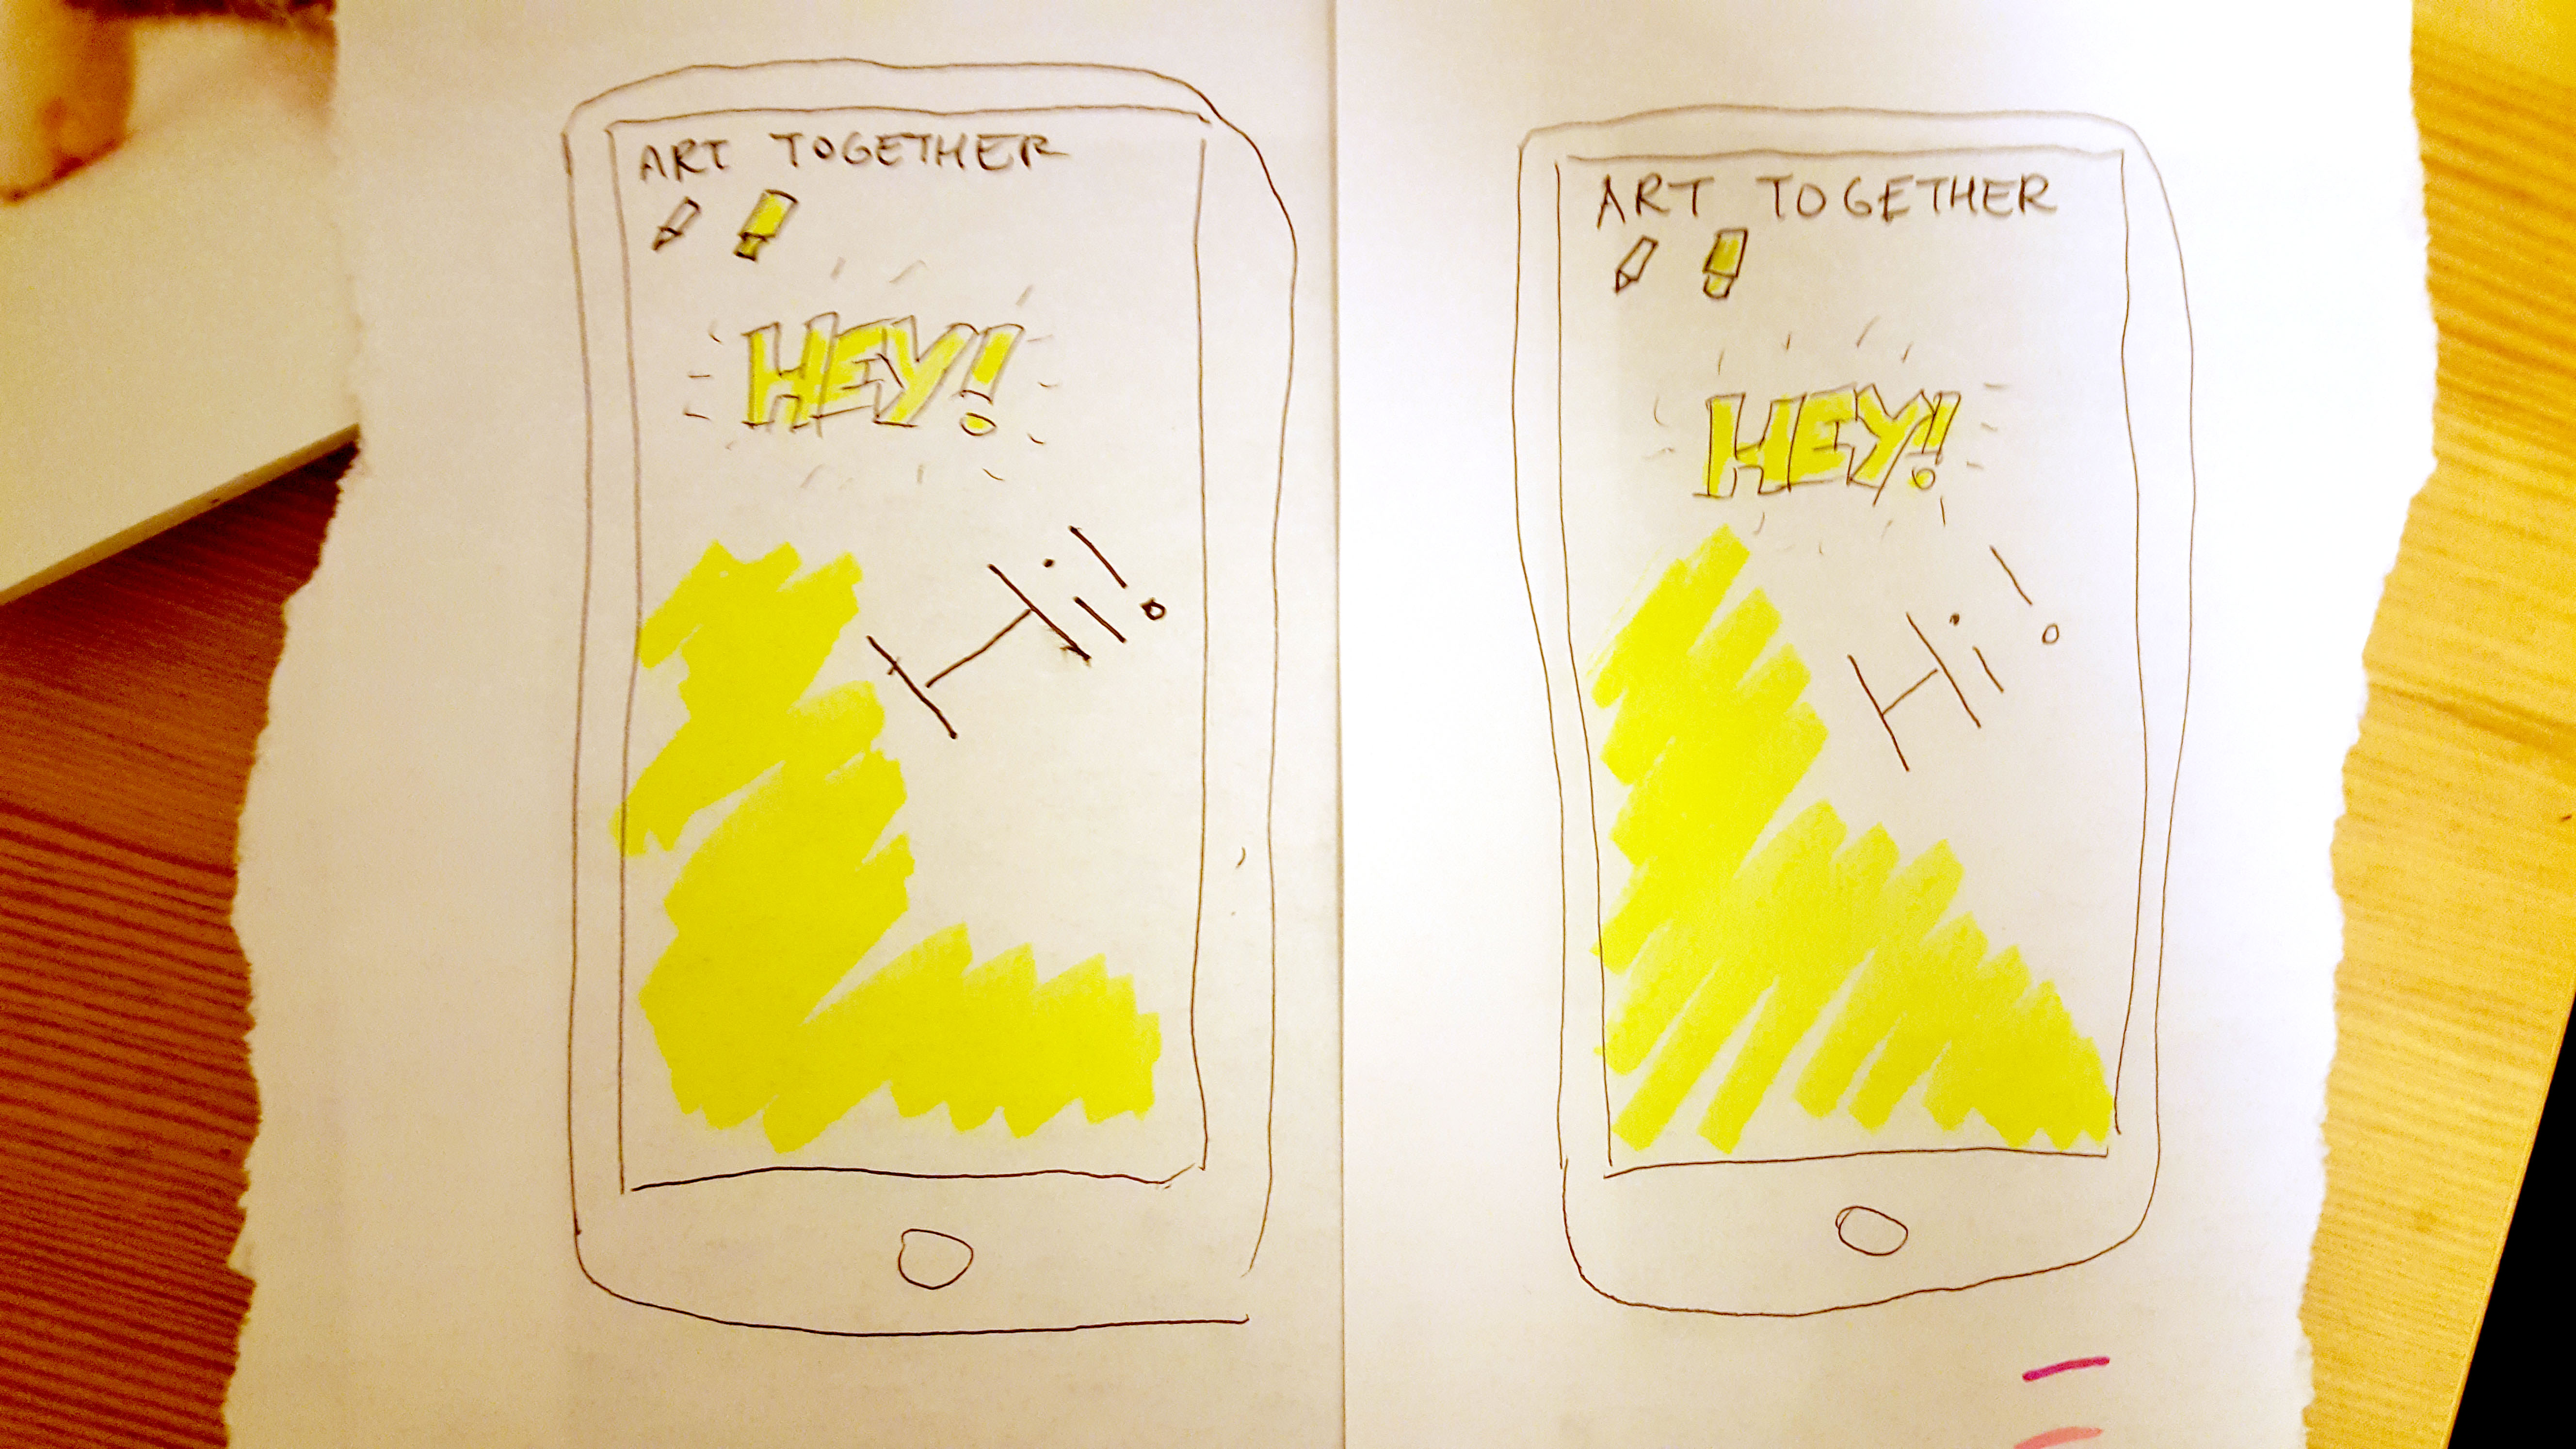 ART TOGETHER
HEY!
Hi!
ART TOGETHER
HEY!
Hi!